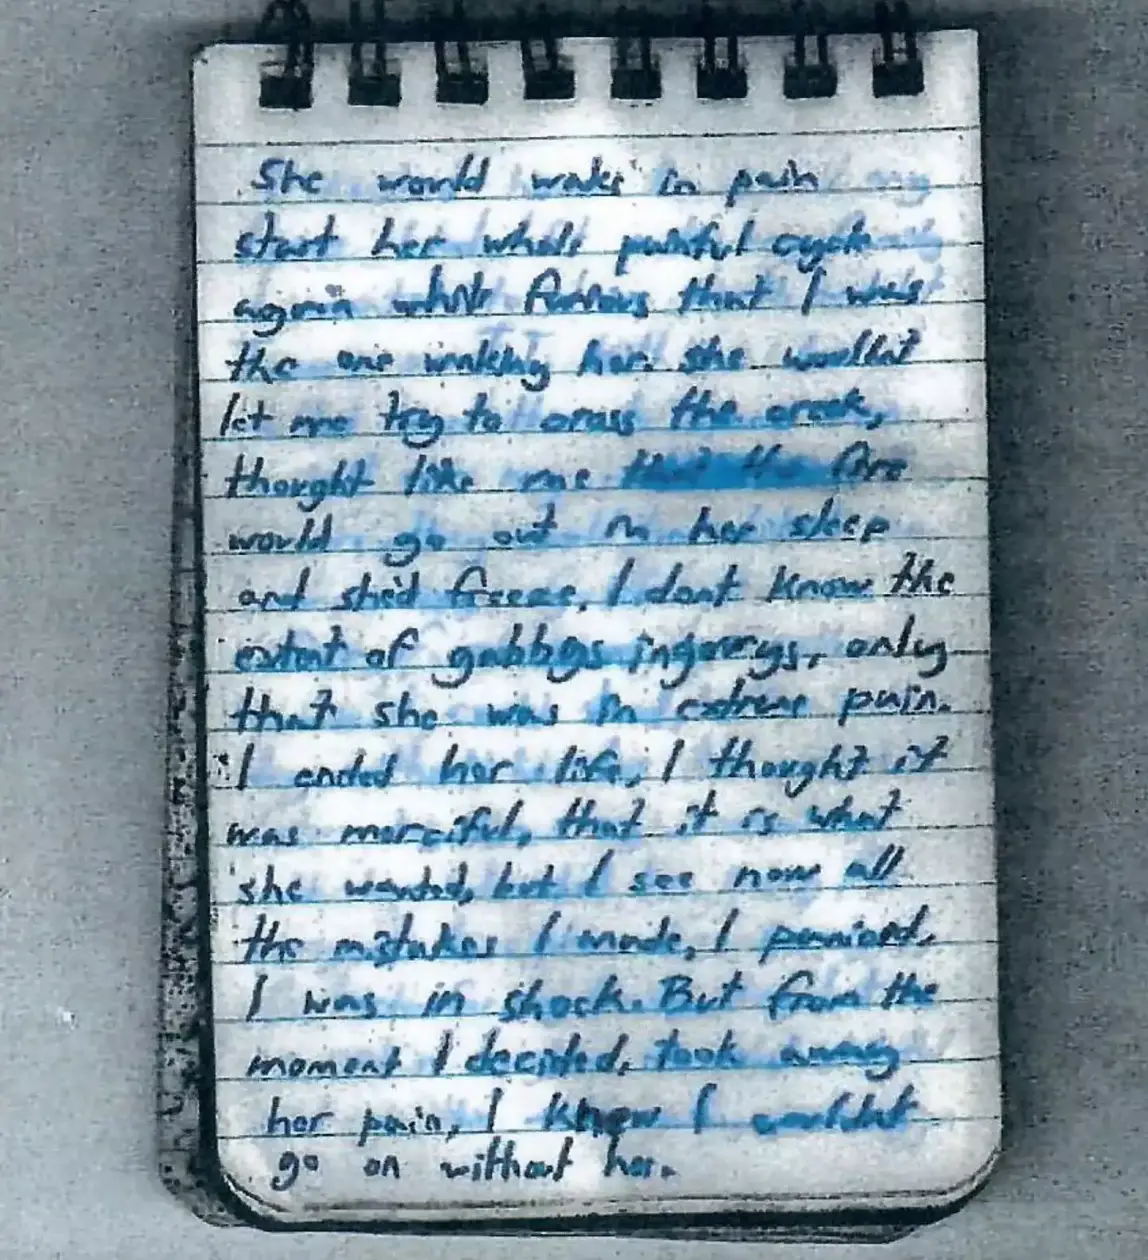 She would wake in pain
start her whole painful cycle
again while furious that I was
the one waking her. she wouldnt
let me try to cross the creek,
thought like me that the fire
would go out in her sleep
and she'd freeze. I dont know the
extent of gabbys ingeerys, only
that she was in extreme pain.
I ended her life, I thought it
was merciful, that it is what
she wanted, but I see now all
the mistakes I made, I panicked,
I was in shock. But from the
moment I decided, took away
her pain, I knew I wouldnt
go on without her.